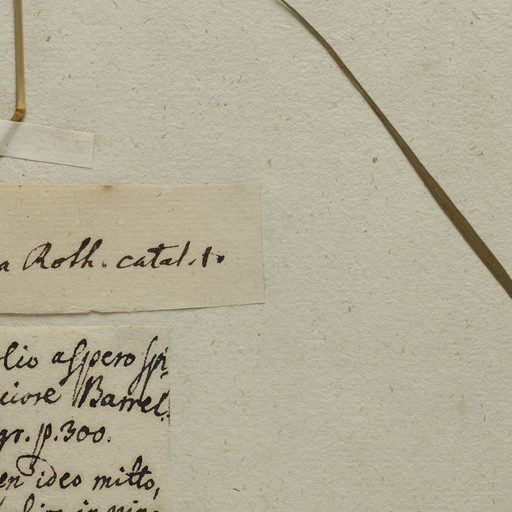 a Roth. catal. 1.
lio aſpero ſpi
ciore Barrel.
gr. p. 300.
en ideo mitto,